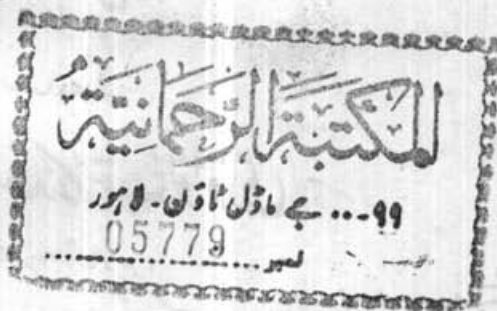 المكتبة الرحمانية
۹۹... جے ماڈل ٹاؤن۔ لاہور
نمبر 05779